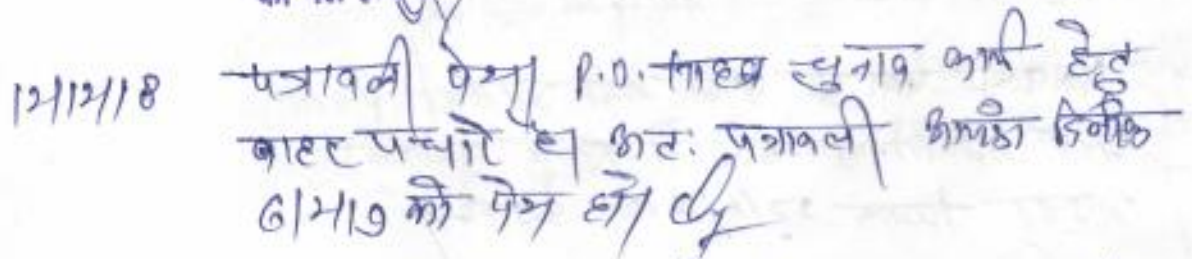 12/12/18 पत्रावली पेश। P.O. साहब चुनाव कार्य हेतु
बाहर पधारे है। अतः पत्रावली आयंदा दिनांक
6/2/19 को पेश हो।